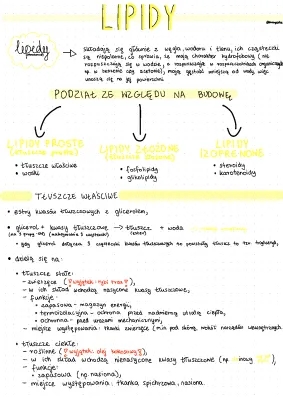 LIPIDY
lipidy
składają się głównie z węgla, wodoru i tlenu, ich cząsteczki
są niepolarne, co sprawia, że mają charakter hydrofobowy (nie
rozpuszczają się w wodzie, a rozpuszczalne w rozpuszczalnikach organicznych
np. w benzenie czy acetonie), mają gęstość mniejszą od wody, więc
unoszą się na jej powierzchni
PODZIAŁ ZE WZGLĘDU NA BUDOWĘ
LIPIDY PROSTE
LIPIDY ZŁOŻONE
LIPIDY
IZOPRENOWE
• tłuszcze właściwe
• woski
• fosfolipidy
• glikolipidy
• steroidy
• karotenoidy
TŁUSZCZE WŁAŚCIWE
• estry kwasów tłuszczowych z glicerolem,
• glicerol + kwasy tłuszczowe → tłuszcz + woda
• gdy glicerol dołącza 3 cząsteczki kwasów tłuszczowych to powstały tłuszcz to
• dzielą się na:
• tłuszcze stałe:
- zwierzęce (wyjątek:
- w ich skład wchodzą nasycone kwasy tłuszczowe,
- funkcje:
• zapasowa - magazyn energii,
• termoizolacyjna - ochrona przed nadmierną utratą ciepła,
• ochronna - przed urazami mechanicznymi,
- miejsce występowania: tkanki zwierzęce (m.in pod skórą, wokół narządów wewnętrznych
• tłuszcze ciekłe:
- roślinne (wyjątek: olej kokosowy),
- w ich skład wchodzą nienasycone kwasy tłuszczowe (np
- funkcje:
• zapasowa (np. nasiona),
- miejsce występowania: tkanka spichrzowa, nasiona.